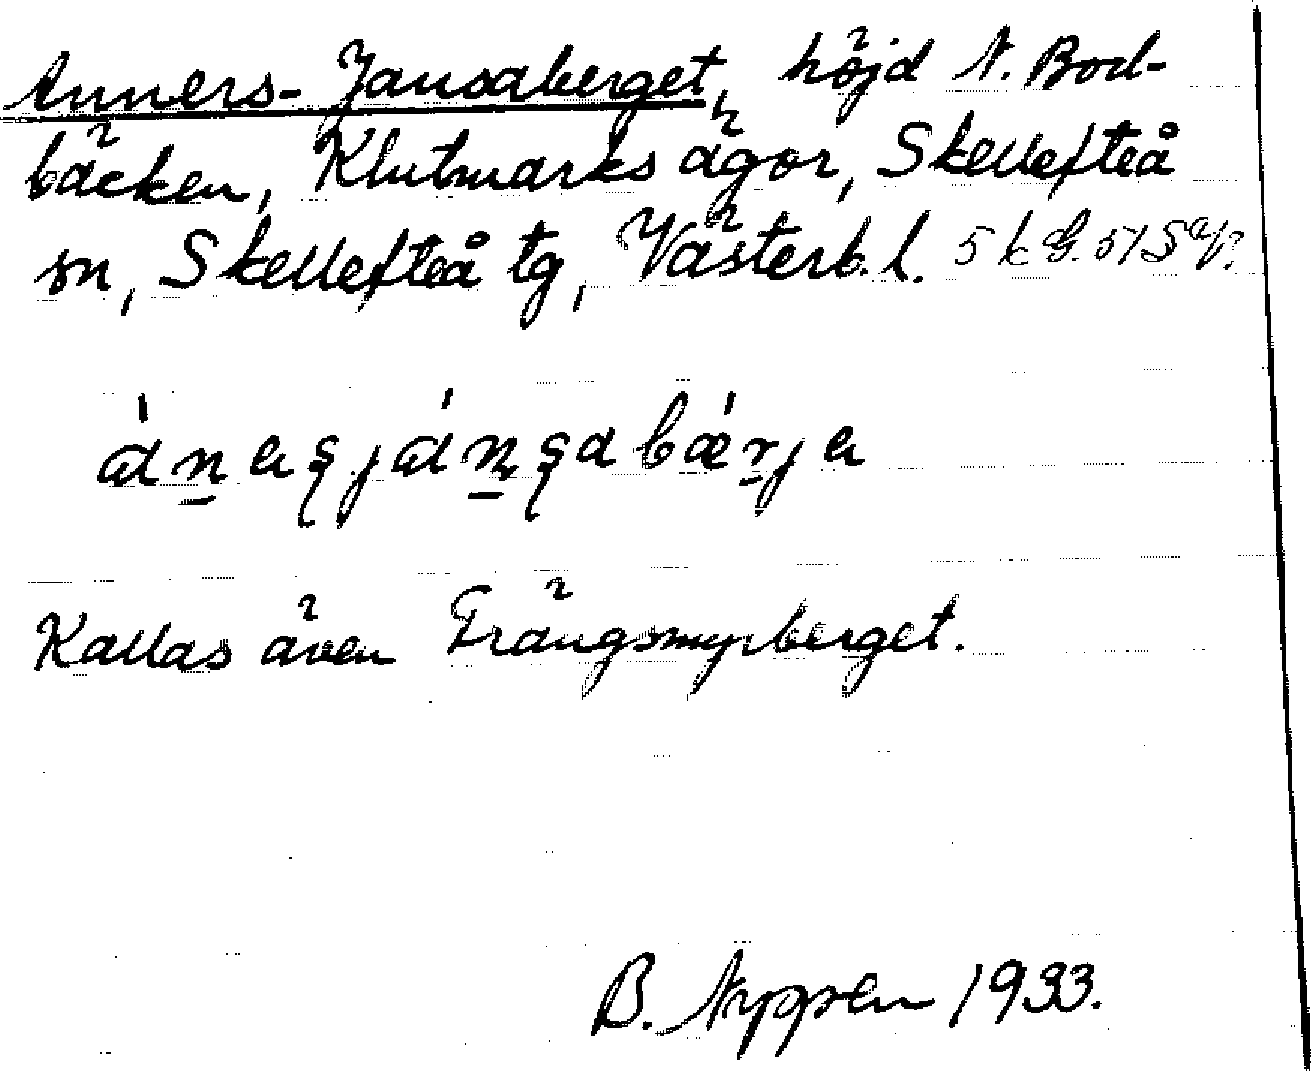 Anners-Jansaberget, höjd N. Bod-
bäcken, Klutmarks ägor, Skellefteå
sn, Skellefteå tg, Västerb. l.
Kallas även Trängsmyrberget.
B. Nyppen 1933.